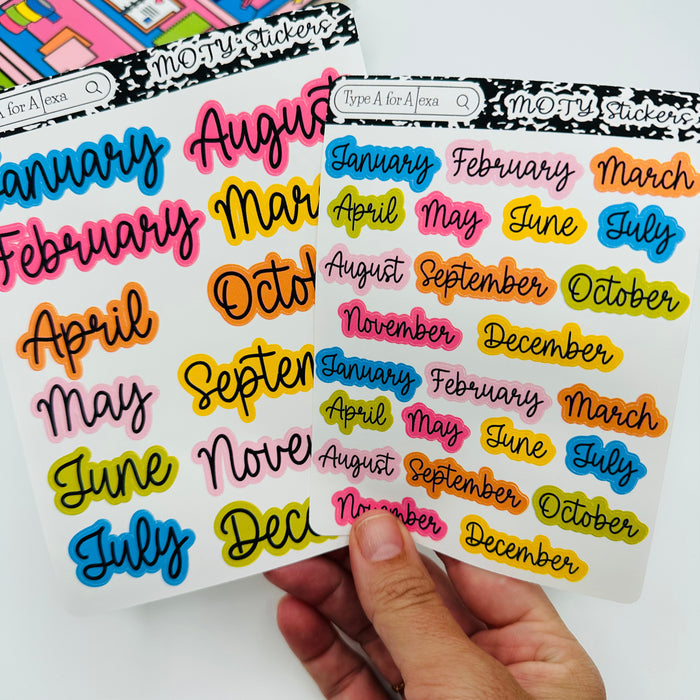 A for Alexa MOTY Stickers
January August
February Mar
April Octo
May Septem
June Nove
July Dec
Type A for Alexa MOTY Stickers
January February March
April May June July
August September October
November December
January February March
April May June July
August September October
November December